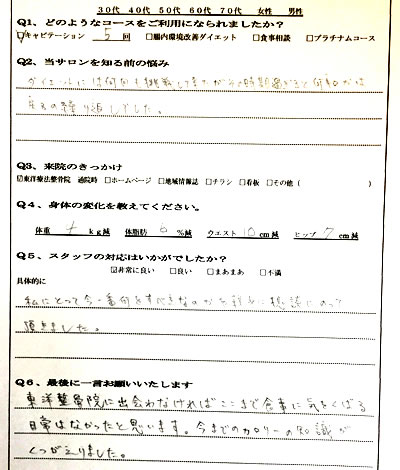 30代 40代 50代 60代 70代 女性 男性
Q1、どのようなコースをご利用になられましたか?
☑キャビテーション 5 回 □腸内環境改善ダイエット □食事相談 □プラチナムコース
Q2、当サロンを知る前の悩み
ダイエットには何回も挑戦してきたがその時期過ぎると
の繰り返しでした。
Q3、来院のきっかけ
☑東洋療法整骨院 通院時 □ホームページ □地域情報誌 □チラシ □看板 □その他( )
Q4、身体の変化を教えてください。
体重 kg減 体脂肪 6 %減 ウエスト 10 cm減 ヒップ 7 cm減
Q5、スタッフの対応はいかがでしたか?
☑非常に良い □良い □まあまあ □不満
具体的に
私にとって今一番何をすべきなのかを親身に相談にのって
頂きました。
Q6、最後に一言お願いいたします
東洋整骨院に出会わなければここまで食事に気をくばる
日常はなかったと思います。今までのカロリーの知識が
くつがえりました。